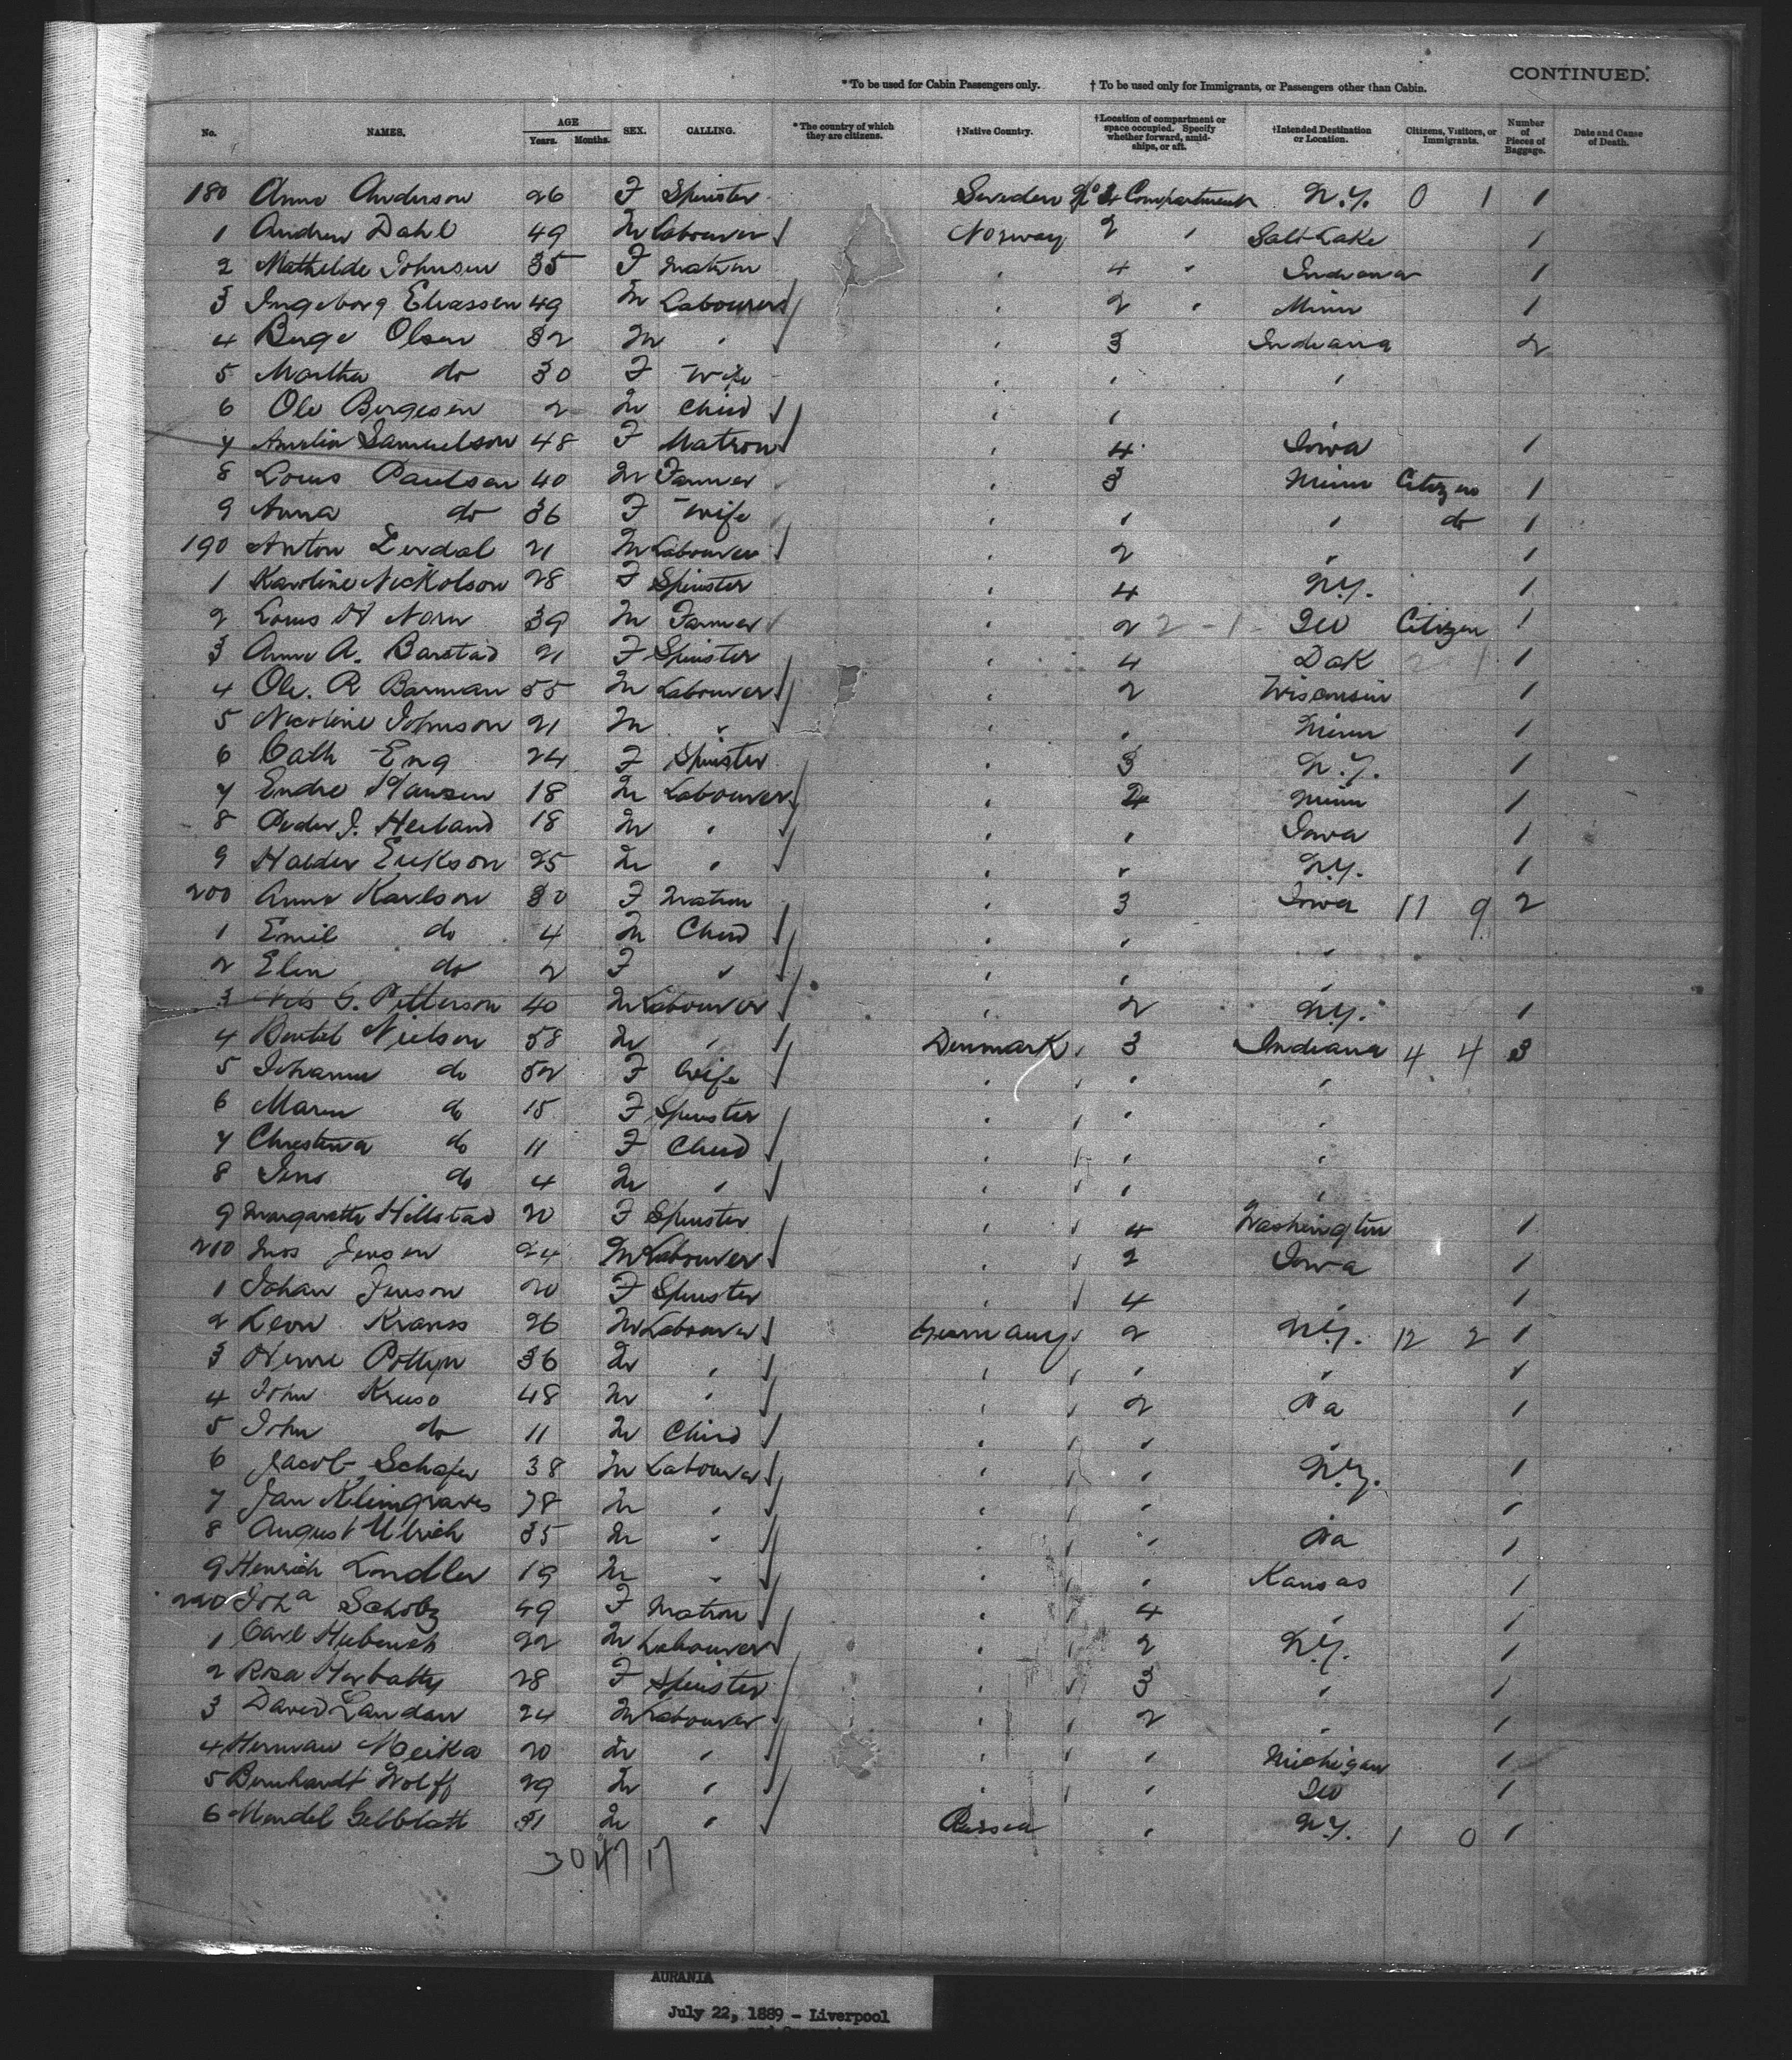 CONTINUED.
*To be used for Cabin Passengers only. † To be used only for Immigrants, or Passengers other than Cabin.
No. NAMES. AGE Years. Months. SEX. CALLING. *The country of which they are citizens. †Native Country. †Location of compartment or space occupied. Specify whether forward, amidships, or aft. †Intended Destination or Location. Citizens, Visitors, or Immigrants. Number of Pieces of Baggage. Date and Cause of Death.
180 Anna Anderson 26 F Spinster Sweden No 4 Compartment N.Y. 0 1 1
1 Andrew Dahl 49 M Labourer Norway 2 " Salt Lake 1
2 Mathilde Johnsen 35 F Matron " 4 " Indiana 1
3 Ingeborg Eliassen 49 M Labourer " 2 " Minn 1
4 Berge Olsen 32 M " " 3 Indiana 2
5 Martha do 30 F Wife " " "
6 Ole Bergesen 2 M Child " "
7 Amelia Samuelson 48 F Matron " 4 Iowa 1
8 Louis Paulson 40 M Farmer " 3 Minn Citizen 1
9 Anna do 36 F Wife " " " do 1
190 Anton Lerdal 21 M Labourer " 2 " 1
1 Karoline Nickolson 28 F Spinster " 4 N.Y. 1
2 Louis H Norn 39 M Farmer " 2 2 - 1 Ill Citizen 1
3 Anne A. Barstad 21 F Spinster " 4 Dak 2 1 1
4 Ole. R Barman 55 M Labourer " 2 Wisconsin 1
5 Nicoline Johnson 21 M " " " Minn 1
6 Cath Eng 24 F Spinster " 3 N.Y. 1
7 Endre Hansen 18 M Labourer " 2 Minn 1
8 Peder J. Heiland 18 M " " " Iowa 1
9 Halder Erikson 25 M " " " N.Y. 1
200 Anna Karlson 30 F Matron " 3 Iowa 11 9 2
1 Emil do 4 M Child " " "
2 Elin do 2 F " " " "
3 Nils G. Petterson 40 M Labourer " 2 N.Y. 1
4 Bertel Nielson 58 M " Denmark " 3 Indiana 4 4 3
5 Johanne do 52 F Wife " " " "
6 Maren do 15 F Spinster " " " "
7 Christina do 11 F Child " " " "
8 Jens do 4 M " " " " "
9 Margarethe Hillstad 20 F Spinster " " 4 Washington 1
210 Jensen 24 M Labourer " " 2 Iowa 1
1 Johan Jenson 20 F Spinster " " 4 " 1
2 Leon Krauss 26 M Labourer Germany " 2 N.Y. 12 2 1
3 36 M " " " " " 1
4 John Kruso 48 M " " " 2 Pa 1
5 John do 11 M Child " " " "
6 Jacob Schafer 38 M Labourer " " " N.Y. 1
7 Jan Klimgraves 28 M " " " " " 1
8 August Ulrich 35 M " " " " Pa 1
9 Henrich Londler 19 M " " " " Kansas 1
220 Joha Scholz 49 F Matron " " 4 " 1
1 Carl 22 M Labourer " " 2 N.Y. 1
2 Rosa Horbatty 28 F Spinster " " 3 " 1
3 David Landau 24 M Labourer " " 2 " 1
4 Herman Meika 20 M " " " " Michigan 1
5 Bernhardt Wolff 29 M " " " " Ill 1
6 Mendel Gelblatt 31 M " Russia " N.Y. 1 0 1
30 47 17
AURANIA
July 22, 1889 - Liverpool